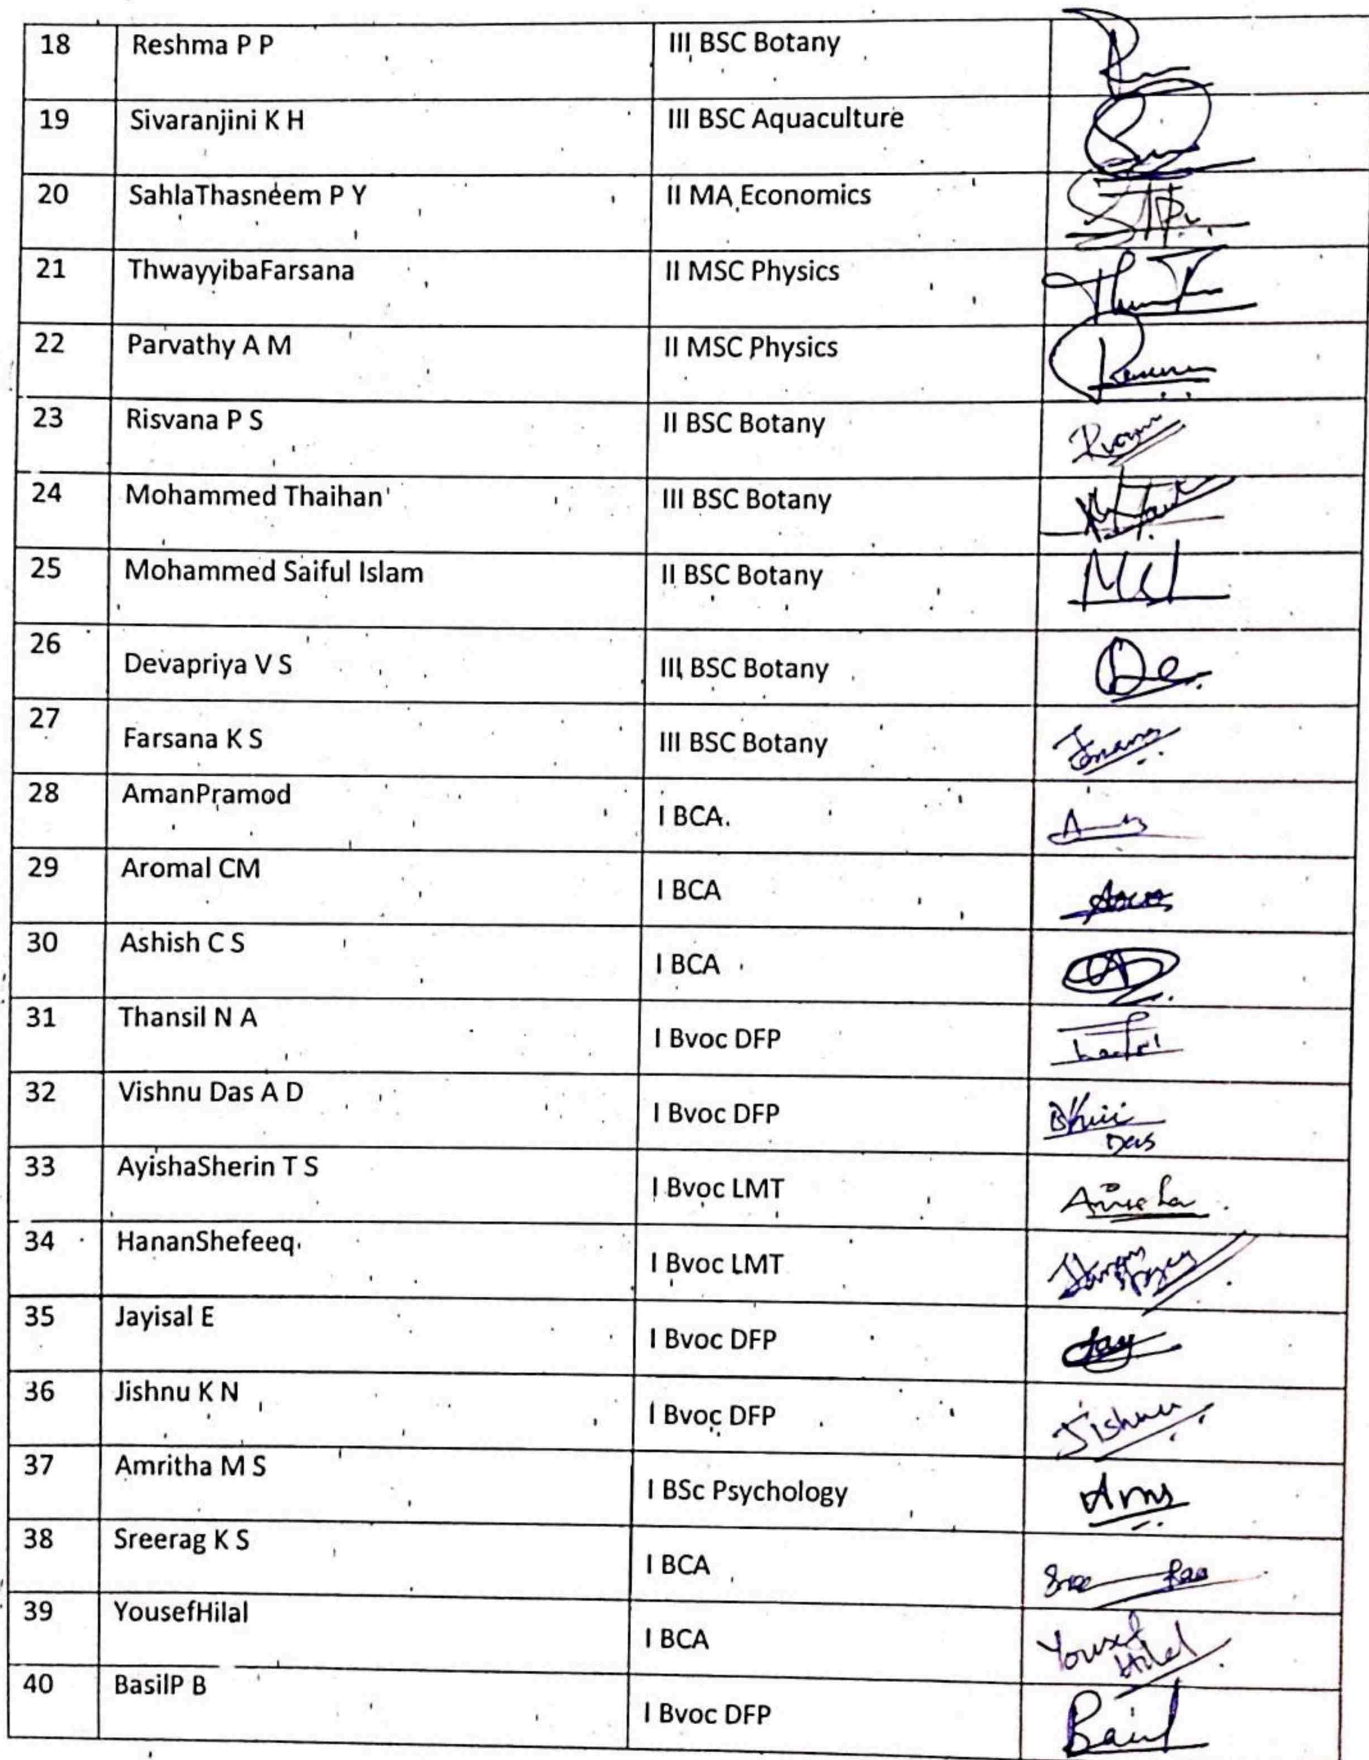 18 Reshma P P III BSC Botany
19 Sivaranjini K H III BSC Aquaculture
20 SahlaThasneem P Y II MA Economics
21 ThwayyibaFarsana II MSC Physics
22 Parvathy A M II MSC Physics
23 Risvana P S II BSC Botany
24 Mohammed Thaihan III BSC Botany
25 Mohammed Saiful Islam II BSC Botany
26 Devapriya V S III BSC Botany
27 Farsana K S III BSC Botany
28 AmanPramod I BCA.
29 Aromal CM I BCA
30 Ashish C S I BCA
31 Thansil N A I Bvoc DFP
32 Vishnu Das A D I Bvoc DFP
Das
33 AyishaSherin T S I Bvoc LMT
34 HananShefeeq I Bvoc LMT
35 Jayisal E I Bvoc DFP Jay
36 Jishnu K N I Bvoc DFP Jishnu
37 Amritha M S I BSc Psychology
38 Sreerag K S I BCA
39 YousefHilal I BCA Yousef
Hilal
40 BasilP B I Bvoc DFP